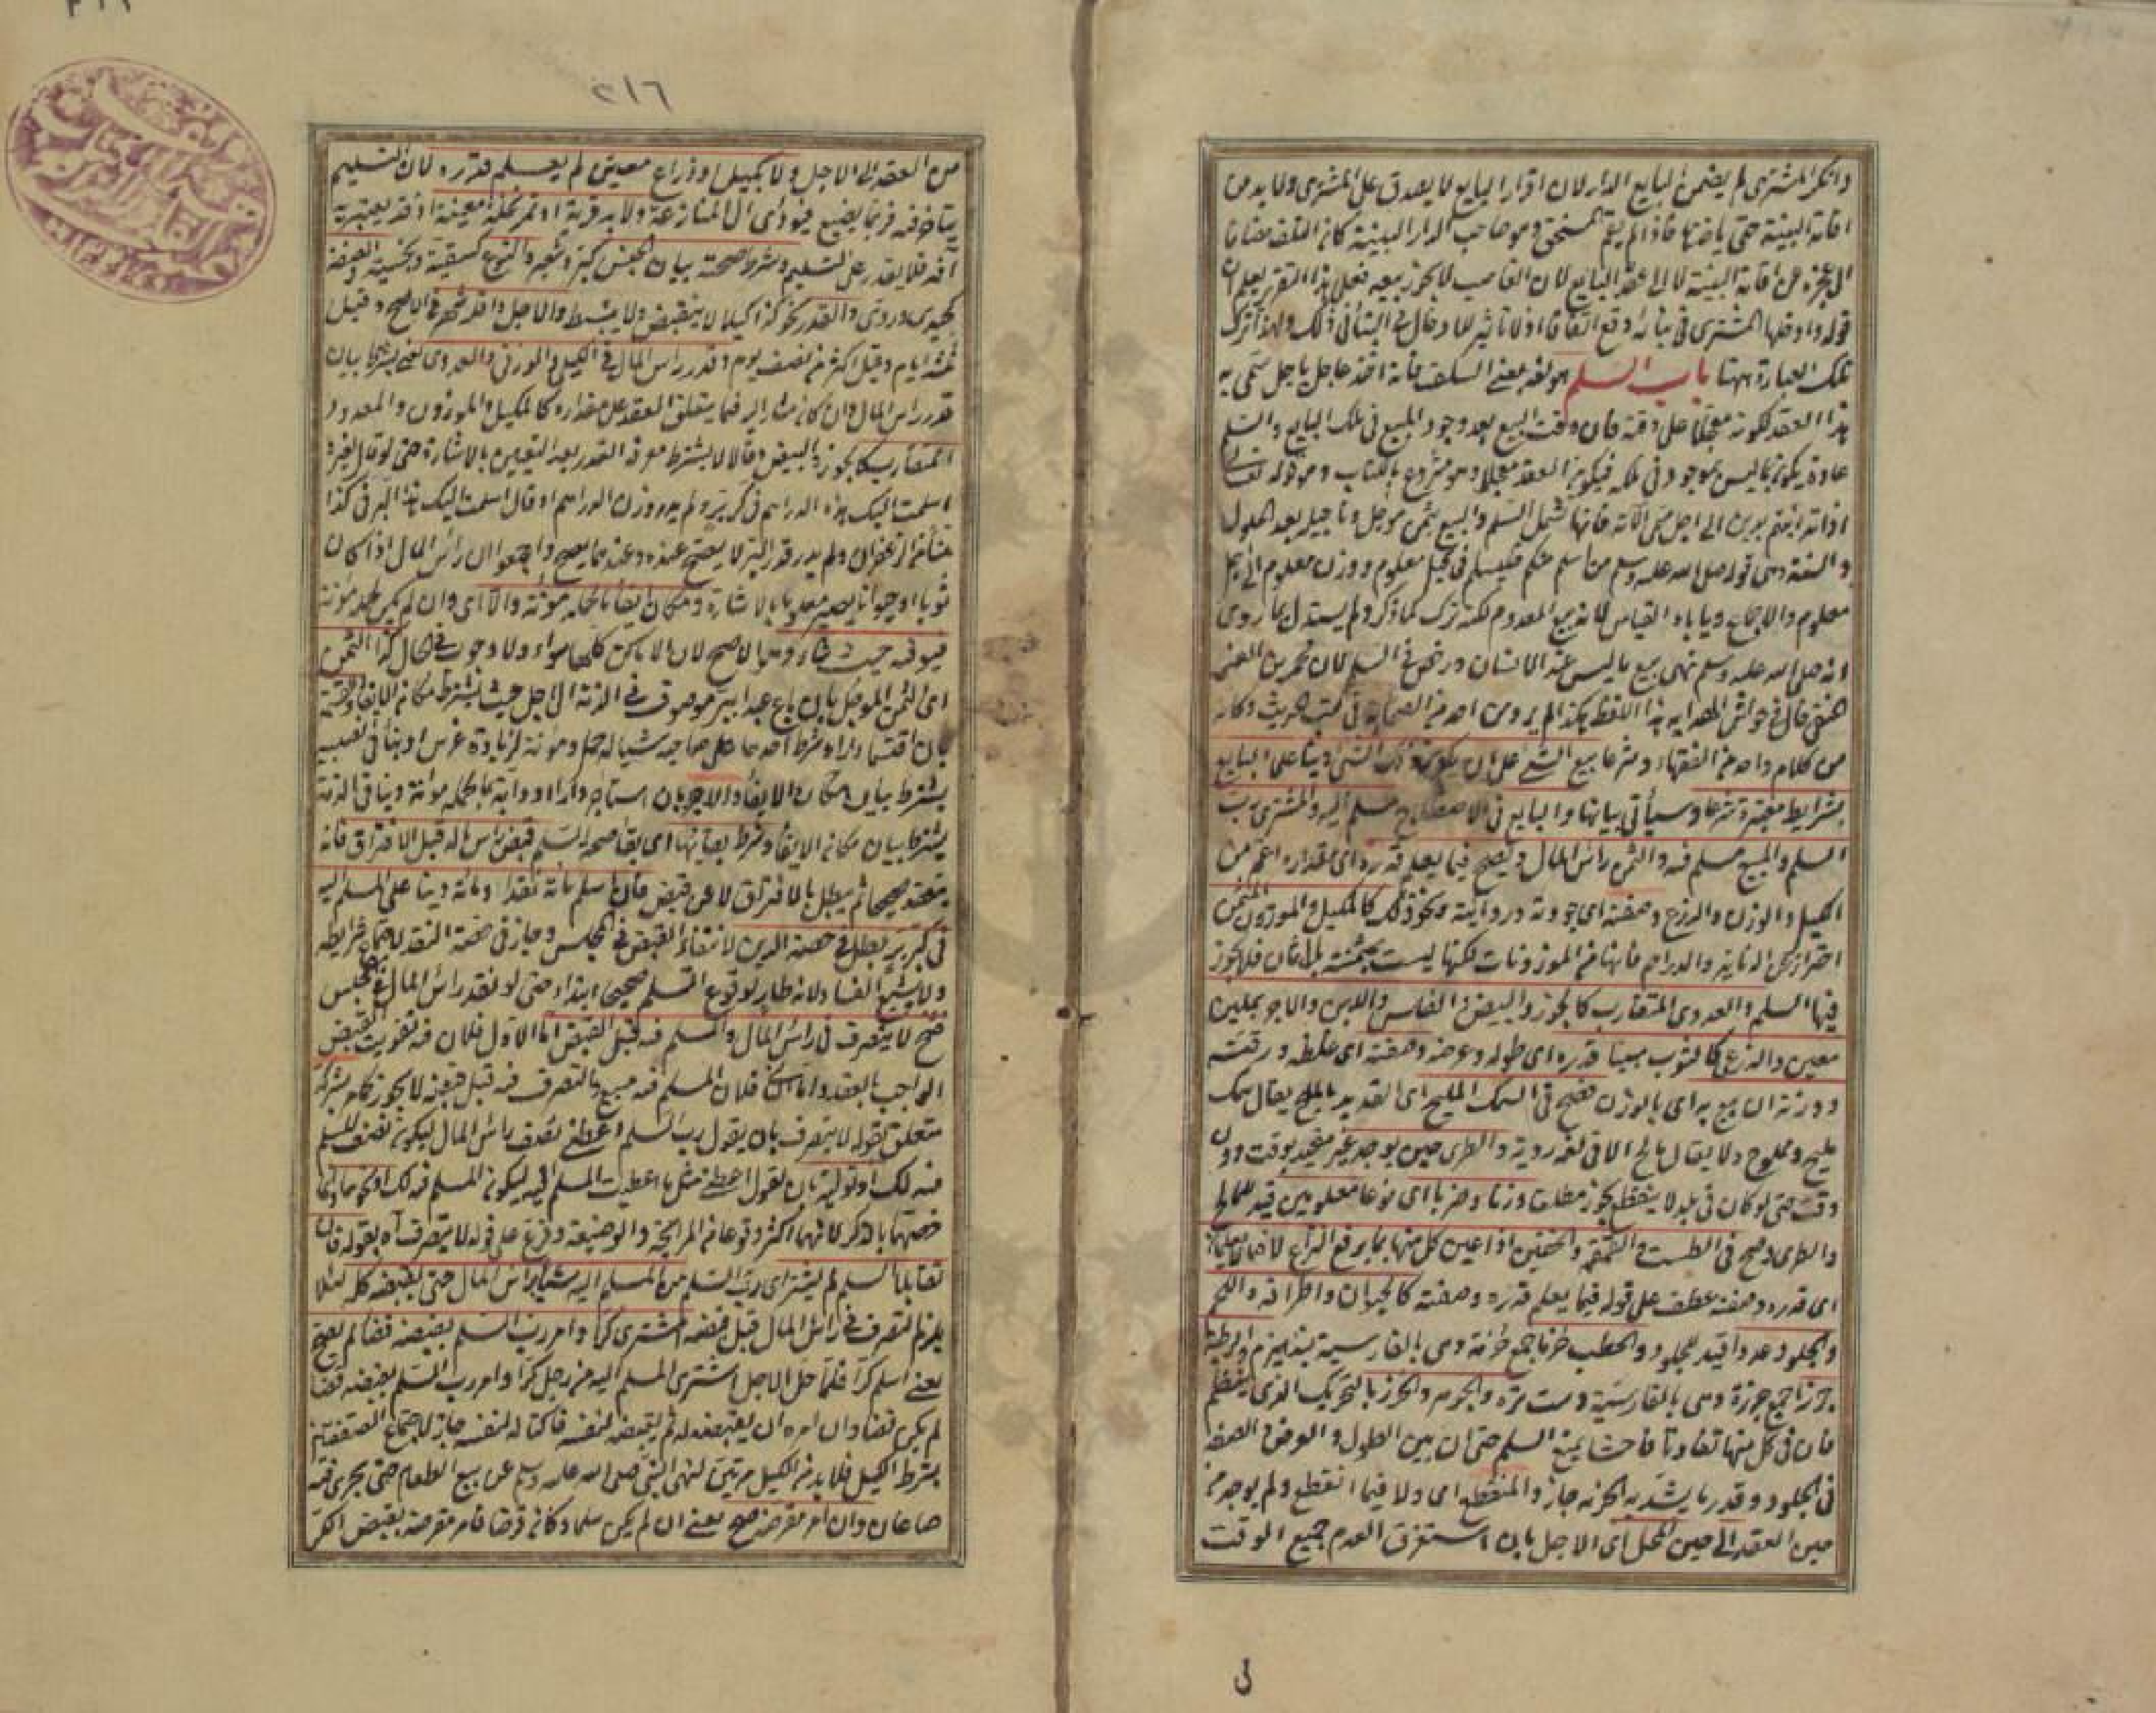 وانكر المشترى لم يضمن البايع الدار لان اقرار البايع لا يصدق على المشترى ولا بد من
اقامة البينة حتى ياخذها فاذا لم يقم المستحق وهو صاحب الدار البينة كان التلف مضافا
الى عجزه عن اقامة البينة لا الى عقد البايع لان الغاصب لا يجوز بيعه فعلى هذا التقرير يعلم ان
قوله وادخلها المشترى فى بنائه وقع اتفاقا اذ لا تاثير للادخال فى البناء فى ذلك ولهذا ترك
تلك العبارة ههنا باب السلم هو لغة بمعنى السلف فانه اخذ عاجل باجل سمى به
هذا العقد لكونه معجلا على وقته فان وقت البيع بعد وجود المبيع فى ملك البايع والسلم
عادة يكون بما ليس بموجود فى ملكه فيكون العقد معجلا وهو مشروع بالكتاب وهو قوله تعالى
اذا تداينتم بدين الى اجل مسمى الآية فانها تشمل السلم والبيع بثمن مؤجل وتاجيله بعد الحلول
والسنة وهى قوله صلى الله عليه وسلم من اسلم منكم فليسلم فى كيل معلوم ووزن معلوم الى اجل
معلوم والاجماع ويأباه القياس لانه بيع المعدوم لكنه ترك لما ذكر ولم يستدل بما روى
انه صلى الله عليه وسلم نهى بيع ما ليس عند الانسان ورخص فى السلم لان محمد بن العز
الحنفى قال فى حواشى الهداية هذا اللفظ هكذا لم يروه من احد من الصحابة فى كتب الحديث وكانه
من كلام واحد من الفقهاء وشرعا بيع الشئ على ان يكون ذلك الشئ دينا على البايع
بشرايط معتبرة شرعا وسيأتى بيانها والبايع فى الاصطلاح مسلم اليه والمشترى رب
السلم والمبيع مسلم فيه والثمن راس المال ويصح فيما يعلم قدره اى مقداره اعم من
الكيل والوزن والذرع وصفته اى جودته ورداءته ونحو ذلك كالمكيل والموزون المثمن
احتراز عن الدنانير والدراهم فانها من الموزونات لكنها ليست بمثمنة بل اثمان فلا يجوز
فيها السلم والعددى المتقارب كالجوز والبيض والفلس واللبن والاجر بملبن
معين والذرعى كالثوب مبينا قدره اى طوله وعرضه وصفته اى غلظه ورقته
ووزنه ان بيع به اى بالوزن فصح فى السمك المليح اى القديد بالملح يقال سمك
مليح ومملوح ولا يقال مالح الا فى لغة ردية والطرى حين يوجد غير مقيد بوقت دون
وقت حتى لو كان فى بلد لا ينقطع يجوز مطلقا وزنا وضربا اى نوعا معلومين قيد للمالح
والطرى وصح فى الطست والقمقمة والخفين اذا عين كل منها بما يرفع النزاع لا فيما لا يعلمان
اى قدره وصفته عطف على قوله فيما يعلم قدره وصفته كالحيوان واطرافه واللحم
والجلود عددا قيد للجلود والحطب حزما جمع حزمة وهى بالفارسية بند هيزم والرطبة
جرزا جمع جرزة وهى بالفارسية دست تره والجوهر والخرز بالتحريك الذى ينظم
فان فى كل منها تفاوتا فاحشا يمنع السلم حتى ان بين الطول والعرض والصفة
فى الجلود وقدر ما يشد به الحزمة جاز والمنقطع اى ولا فيما انقطع ولم يوجد من
حين العقد الى حين المحل اى الاجل بان استغرق العدم جميع الوقت
ل
٢١٦
من العقد الى الاجل ولا بمكيل او ذراع معين لم يعلم قدره لان التسليم
يتاخر فيه فربما يضيع فيؤدى الى المنازعة ولا ببر قرية او تمر نخلة معينة اذ قد يعتريه
آفة فلا يقدر على التسليم وشرط صحته بيان الجنس كبر وشعير والنوع كسقية وبخسية والصفة
كجيد وردى والقدر نحو كذا كيلا لا ينقبض ولا ينبسط والاجل واقله شهر فى الاصح وقيل
ثلثة ايام وقيل اكثر من نصف يوم وقدر راس المال فى الكيلى والوزنى والعددى يعنى يشترط بيان
قدر راس المال وان كان مشارا اليه فيما يتعلق العقد على مقداره كالمكيل والموزون والمعدود
المتقارب كالجوز والبيض وقالا لا يشترط معرفة القدر بعد التعيين بالاشارة حتى لو قال لغيره
اسلمت اليك هذه الدراهم فى كر بر ولم يدر وزن الدراهم او قال اسلمت اليك هذا البر فى كذا
منا من الزعفران ولم يدر قدر البر لا يصح عنده وعندهما يصح واجمعوا ان راس المال اذا كان
ثوبا او حيوانا يصير معلوما بالاشارة ومكان ايفاء ما لحمله مؤنة والا اى وان لم يكن لحمله مؤنة
فيوفيه حيث شاء وهو الاصح لان الاماكن كلها سواء ولا وجوب فى الحال كذا الثمن
اى الثمن المؤجل بان باع عبدا ببر موصوف فى الذمة الى اجل حيث يشترط مكان الايفاء والقسمة
بان اقتسما دارا وشرط احدهما على صاحبه شيئا له حمل ومؤنة لزيادة غرس او بناء فى نصيبه
يشترط بيان مكان الايفاء والاجر بان استاجر دارا او دابة بما لحمله مؤنة دينا فى الذمة
يشترط بيان مكان الايفاء وشرط بقائها اى بقاء صحة السلم قبض راس المال قبل الافتراق فانه
ينعقد صحيحا ثم يبطل بالافتراق لا عن قبض فان اسلم مائة نقدا ومائة دينا على المسلم اليه
فى كر بر بطل فى حصة الدين لانتفاء القبض فى المجلس وجاز فى حصة النقد لاجتماع شرايطه
ولا يشيع الفساد لانه طار لوقوع السلم صحيحا ابتداء حتى لو نقد راس المال فى المجلس
صح لا يتصرف فى راس المال والمسلم فيه قبل القبض اما الاول فلان فيه تفويت القبض
الواجب بالعقد واما الثانى فلان المسلم فيه مبيع والتصرف فيه قبل قبضه لا يجوز كالشركة
متعلق بقوله لا يتصرف بان يقول رب السلم اعطنى نصف راس المال ليكون نصف المسلم
فيه لك او تولية بان يقول اعطنى مثل ما اعطيت المسلم اليه ليكون المسلم فيه لك او نحوهما وانما
خصهما بالذكر لانهما اكثر وقوعا من المرابحة والوضيعة وفرع على قوله لا يتصرف آه بقوله فان
تقايلا السلم لم يشتر اى رب السلم من المسلم اليه شيئا براس المال حتى يقبضه كله لئلا
يلزم التصرف فى راس المال قبل قبضه اشترى كرا وامر رب السلم بقبضه قضاء لم يصح
يعنى اسلم كرا فلما حل الاجل اشترى المسلم اليه من رجل كرا وامر رب السلم بقبضه قضاء
لم يكن قضاء وان امره ان يقبضه له ثم يقبضه لنفسه فاكتاله لنفسه جاز لاجتماع الصفقتين
بشرط الكيل فلا بد من الكيل مرتين لنهى النبى صلى الله عليه وسلم عن بيع الطعام حتى يجرى فيه
صاعان وان امر مقرضه صح يعنى ان لم يكن سلما وكان قرضا فامر مقرضه بقبض الكر